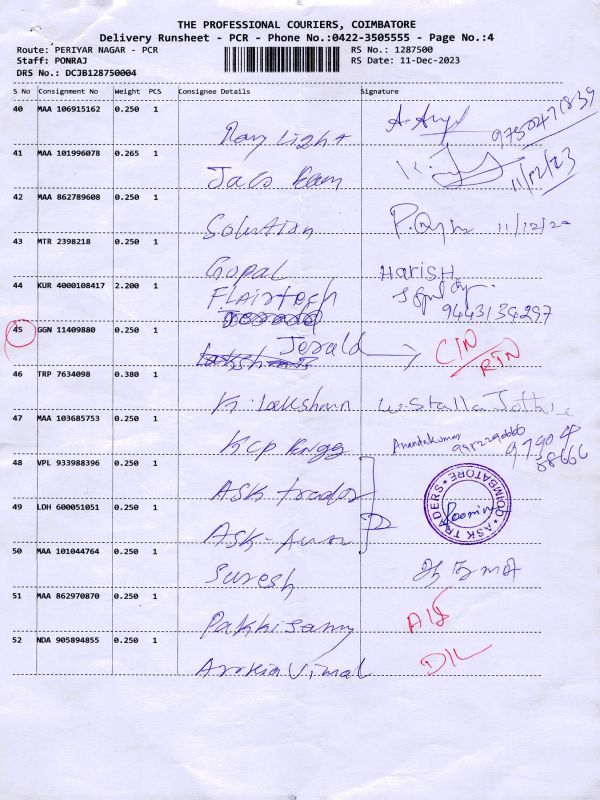 THE PROFESSIONAL COURIERS, COIMBATORE
Delivery Runsheet - PCR - Phone No.:0422-3505555 - Page No.:4
Route: PERIYAR NAGAR - PCR RS No.: 1287500
Staff: PONRAJ RS Date: 11-Dec-2023
DRS No.: DCJB128750004
S No Consignment No Weight PCS Consignee Details Signature
40 MAA 106915162 0.250 1
Ray Light
41 MAA 101996078 0.265 1
11/12/23
42 MAA 862789608 0.250 1
Solution 11/12/20
43 MTR 2398218 0.250 1
Gopal HARISH
44 KUR 4000108417 2.200 1
FLAIRTECH
9443134297
45 GGN 11409880 0.250 1
Jerald CIN
RTN
46 TRP 7634098 0.380 1
K. Lakshman
47 MAA 103685753 0.250 1
Kcp Engg Anandakumar
97904
88666
48 VPL 933988396 0.250 1
ASK traders
ASK TRADERS COIMBATORE
49 LDH 600051051 0.250 1
ASK-
50 MAA 101044764 0.250 1
Suresh
51 MAA 862970870 0.250 1
Pakkisamy
52 NDA 905894855 0.250 1
Arokia Vimal D/L